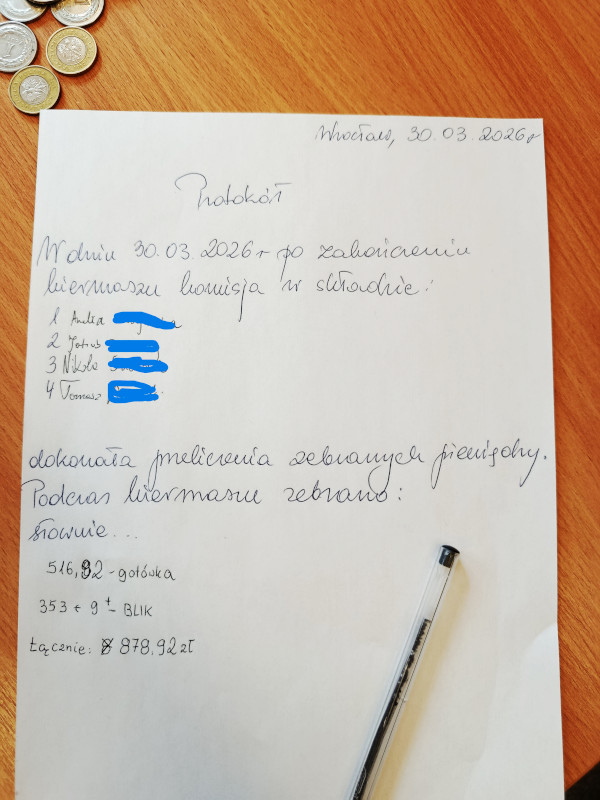 Wrocław, 30.03.2026r
Protokół
W dniu 30.03.2026r po zakończeniu
kiermaszu komisja w składzie:
1 Aneta
2 Jakub
3 Nikola
4 Tomasz
dokonała przeliczenia zebranych pieniędzy.
Podczas kiermaszu zebrano:
słownie...
516,92 - gotówka
353 + 9 - BLIK
Łącznie: 878,92 zł